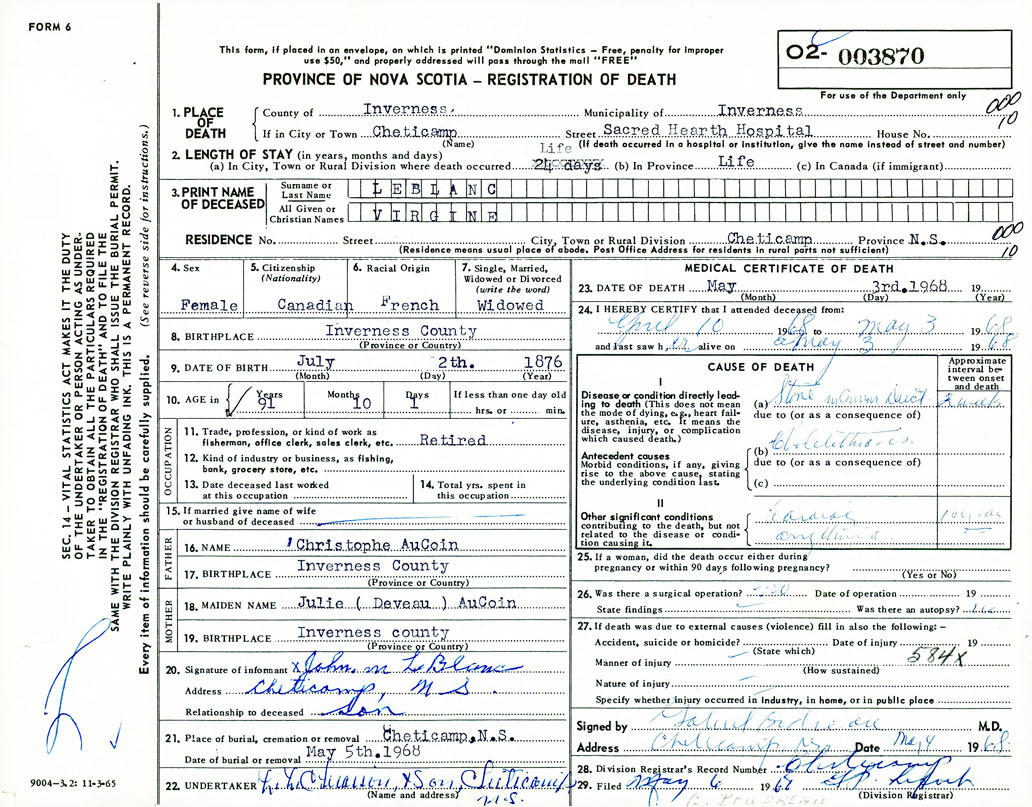 FORM 6
This form, if placed in an envelope, on which is printed "Dominion Statistics – Free, penalty for improper
use $50," and properly addressed will pass through the mail "FREE"
PROVINCE OF NOVA SCOTIA – REGISTRATION OF DEATH
O2- 003870
For use of the Department only
000
10
1. PLACE OF DEATH
County of Inverness. Municipality of Inverness
If in City or Town Cheticamp Street Sacred Hearth Hospital House No.
(Name) (If death occurred in a hospital or institution, give the name instead of street and number)
2. LENGTH OF STAY (in years, months and days)
Life
(a) In City, Town or Rural Division where death occurred 24 days (b) In Province Life (c) In Canada (if immigrant)
3. PRINT NAME OF DECEASED
Surname or Last Name LEBLANC
All Given or Christian Names VIRGINE
RESIDENCE No. Street City, Town or Rural Division Cheticamp Province N.S.
(Residence means usual place of abode. Post Office Address for residents in rural parts not sufficient)
000
10
4. Sex
Female
5. Citizenship
(Nationality)
Canadian
6. Racial Origin
French
7. Single, Married,
Widowed or Divorced
(write the word)
Widowed
8. BIRTHPLACE Inverness County
(Province or Country)
9. DATE OF BIRTH July 2th. 1876
(Month) (Day) (Year)
10. AGE in Years 91 Months 10 Days 1 If less than one day old
hrs. or min.
OCCUPATION
11. Trade, profession, or kind of work as
fisherman, office clerk, sales clerk, etc. Retired
12. Kind of industry or business, as fishing,
bank, grocery store, etc.
13. Date deceased last worked
at this occupation
14. Total yrs. spent in
this occupation
15. If married give name of wife
or husband of deceased
FATHER
16. NAME Christophe AuCoin
17. BIRTHPLACE Inverness County
(Province or Country)
MOTHER
18. MAIDEN NAME Julie ( Deveau ) AuCoin
19. BIRTHPLACE Inverness county
(Province or Country)
20. Signature of informant x John. m LeBlanc
Address Cheticamp, N S.
Relationship to deceased son
21. Place of burial, cremation or removal Cheticamp,N.S.
Date of burial or removal May 5th.1968
22. UNDERTAKER & Son, Cheticamp
N.S.
(Name and address)
MEDICAL CERTIFICATE OF DEATH
23. DATE OF DEATH May 3rd.1968 19
(Month) (Day) (Year)
24. I HEREBY CERTIFY that I attended deceased from:
April 10 1968 to May 3 1968
and last saw her alive on May 3 1968
CAUSE OF DEATH
Approximate
interval be-
tween onset
and death
I
Disease or condition directly lead-
ing to death (This does not mean
the mode of dying, e.g., heart fail-
ure, asthenia, etc. It means the
disease, injury, or complication
which caused death.)
(a) Stone in Common Duct 3 week
due to (or as a consequence of)
Antecedent causes
Morbid conditions, if any, giving
rise to the above cause, stating
the underlying condition last.
(b) Cholelithiasis.
due to (or as a consequence of)
(c)
II
Other significant conditions
contributing to the death, but not
related to the disease or condi-
tion causing it.
Cardiac
25. If a woman, did the death occur either during
pregnancy or within 90 days following pregnancy?
(Yes or No)
26. Was there a surgical operation? Date of operation 19
State findings Was there an autopsy?
27. If death was due to external causes (violence) fill in also the following: –
Accident, suicide or homicide? Date of injury 19
(State which)
584x
Manner of injury
(How sustained)
Nature of injury
Specify whether injury occurred in industry, in home, or in public place
Signed by M.D.
Address Cheticamp Date May 4 1968.
28. Division Registrar's Record Number Cheticamp
29. Filed May 6 19
(Division Registrar)
SEC. 14 – VITAL STATISTICS ACT MAKES IT THE DUTY
OF THE UNDERTAKER OR PERSON ACTING AS UNDER-
TAKER TO OBTAIN ALL THE PARTICULARS REQUIRED
IN THE "REGISTRATION OF DEATH" AND TO FILE THE
SAME WITH THE DIVISION REGISTRAR WHO SHALL ISSUE THE BURIAL PERMIT.
WRITE PLAINLY WITH UNFADING INK. THIS IS A PERMANENT RECORD.
Every item of information should be carefully supplied. (See reverse side for instructions.)
9004–3.2: 11-3-65